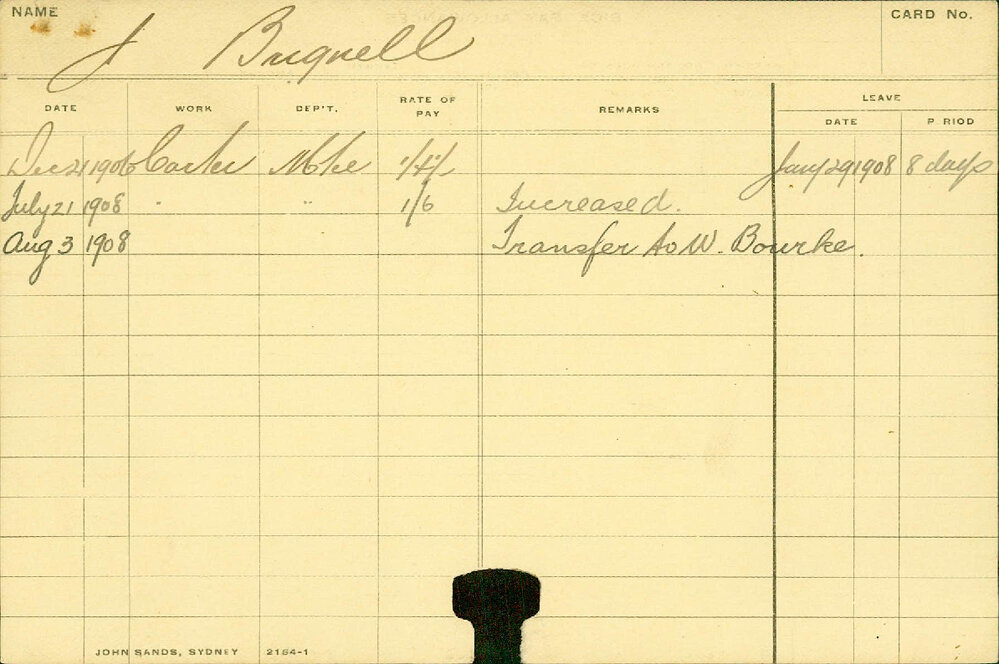 NAME
J Brignell
CARD No.
DATE WORK DEP'T. RATE OF PAY REMARKS LEAVE
DATE P RIOD
Dec 21 1906 Carter 1/4½ Jany 29 1908 8 days
July 21 1908 " " 1/6 Increased.
Aug 3 1908 Transfer to W. Bourke.
JOHN SANDS, SYDNEY 2164-1